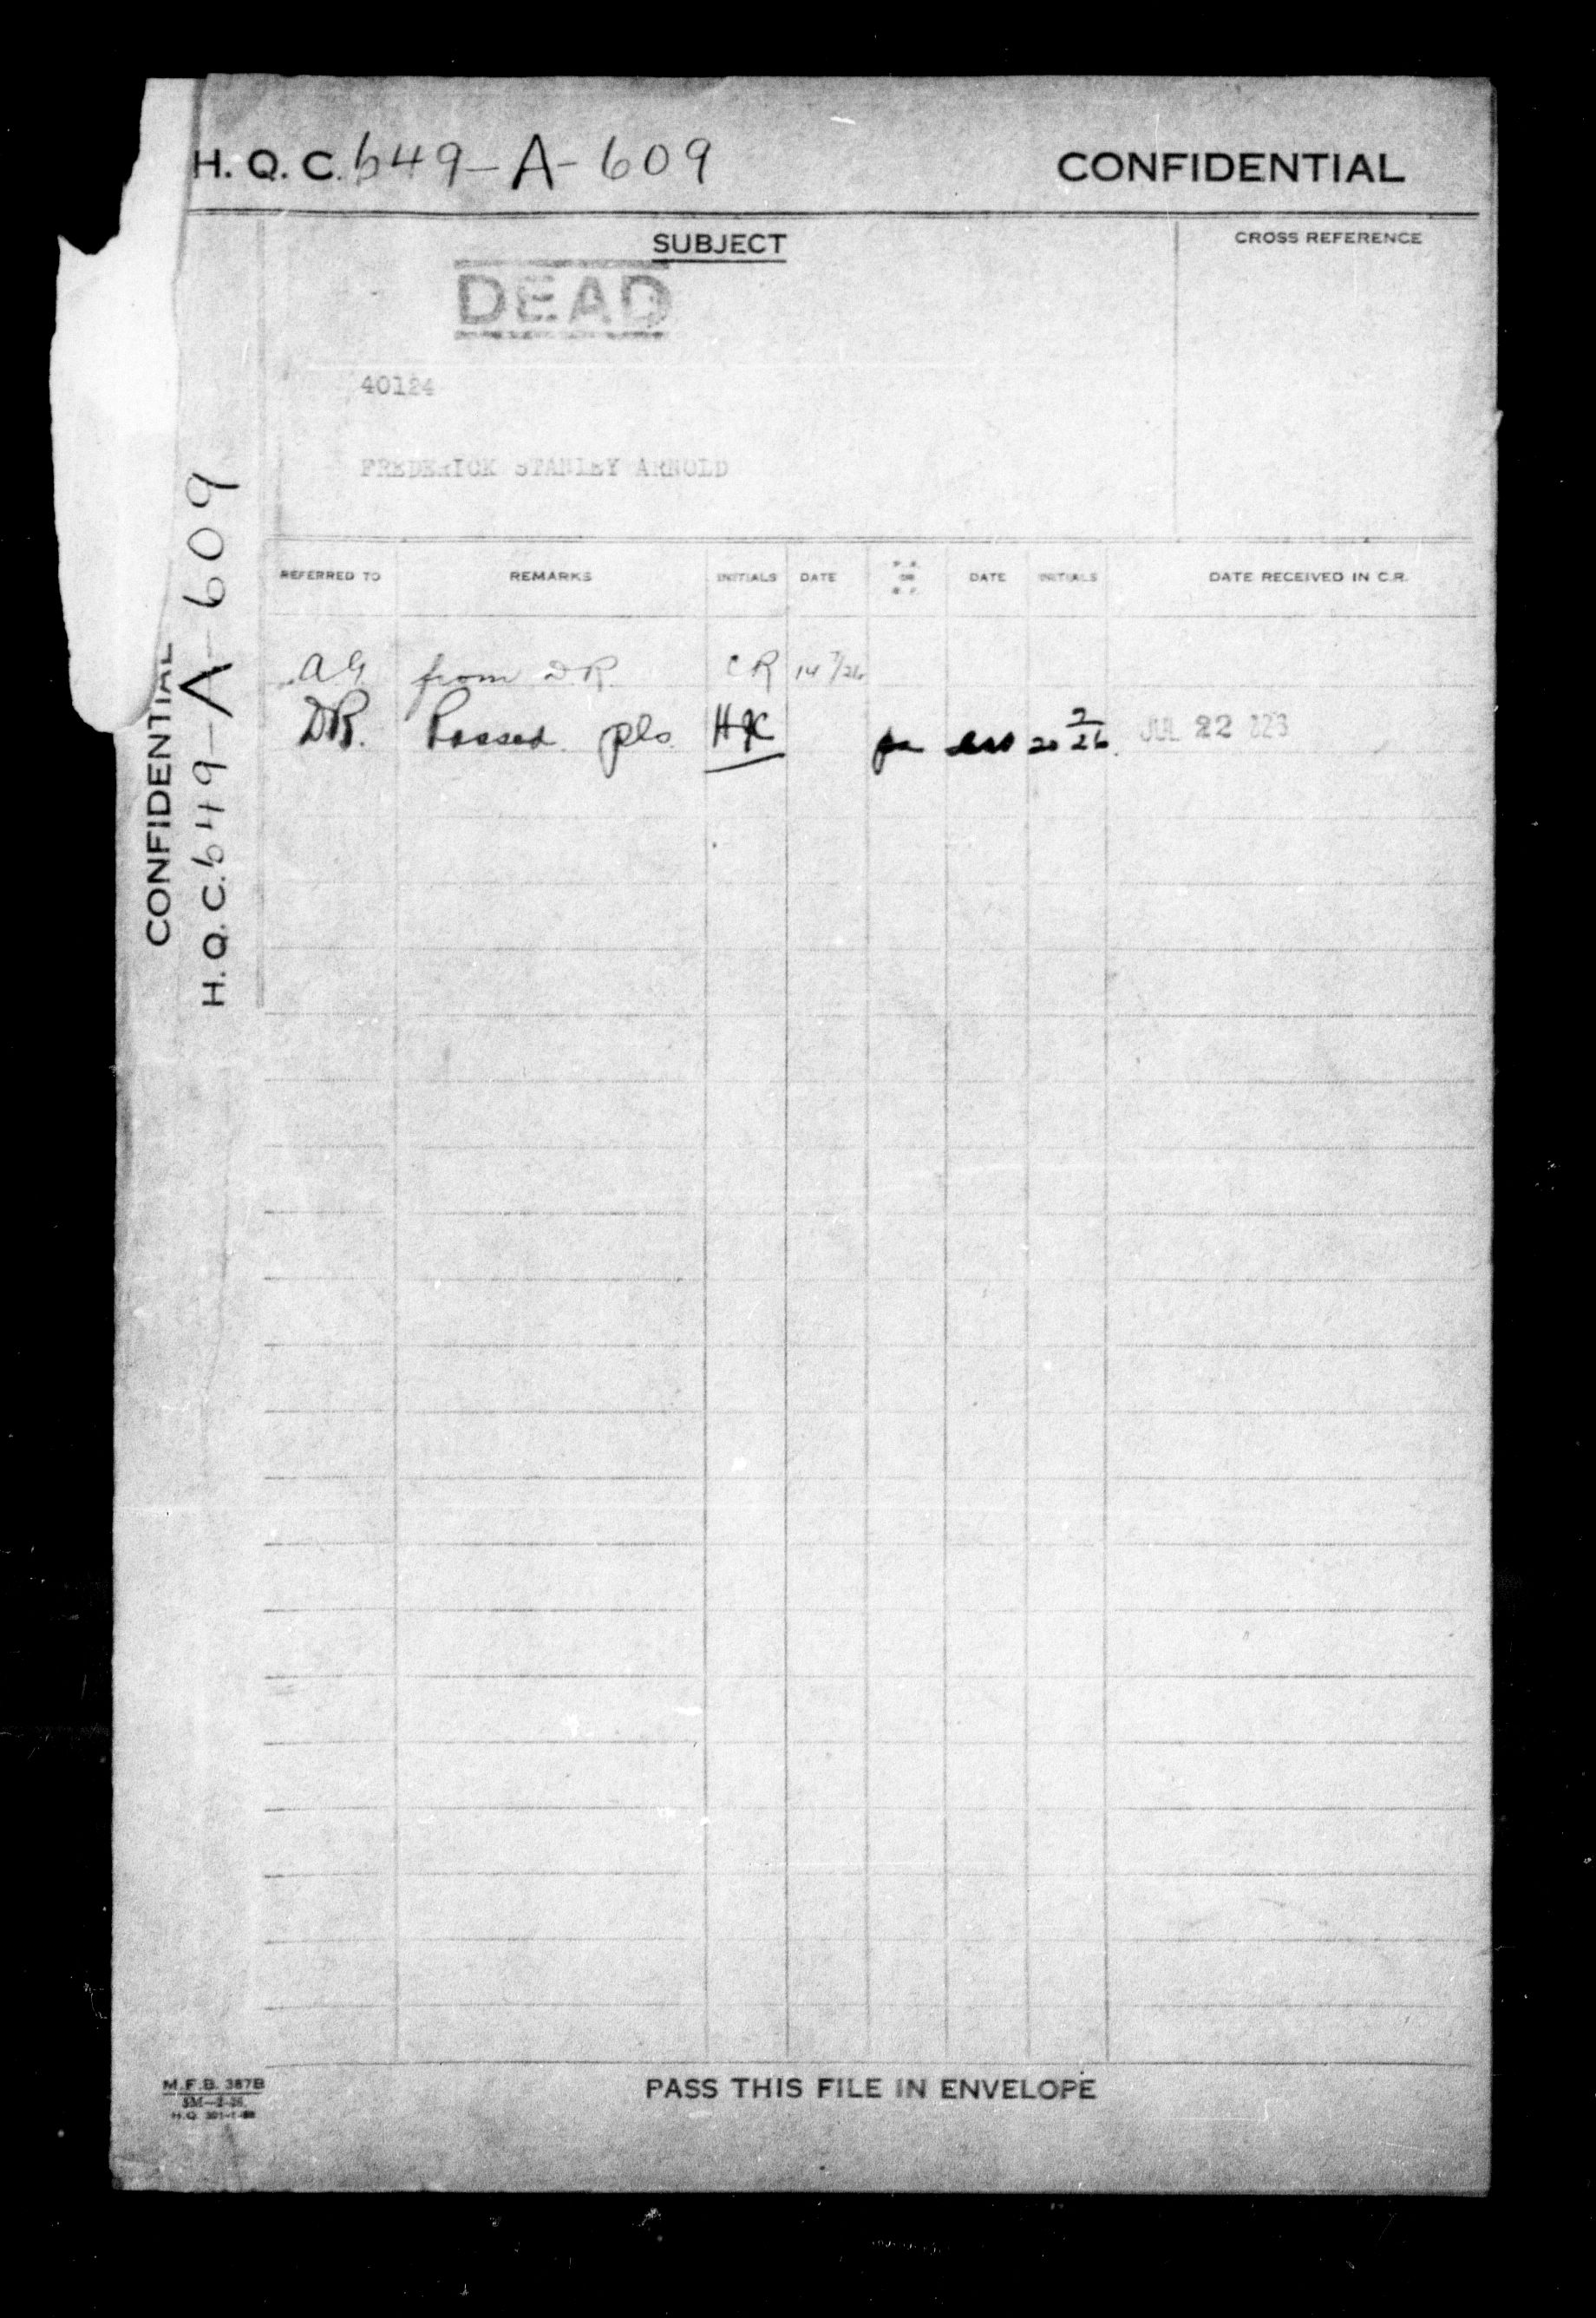 H. Q. C. 649-A-609 CONFIDENTIAL
SUBJECT
CROSS REFERENCE
DEAD
40124
FREDERICK STANLEY ARNOLD
REFERRED TO REMARKS INITIALS DATE P.A. OR B.F. DATE INITIALS DATE RECEIVED IN C.R.
AG. from D.R. CR 14 7/26
DR. Passed pls HK pa 20 7/26 JUL 22
CONFIDENTIAL
H. Q. C. 649-A-609
M.F.B. 387B
PASS THIS FILE IN ENVELOPE